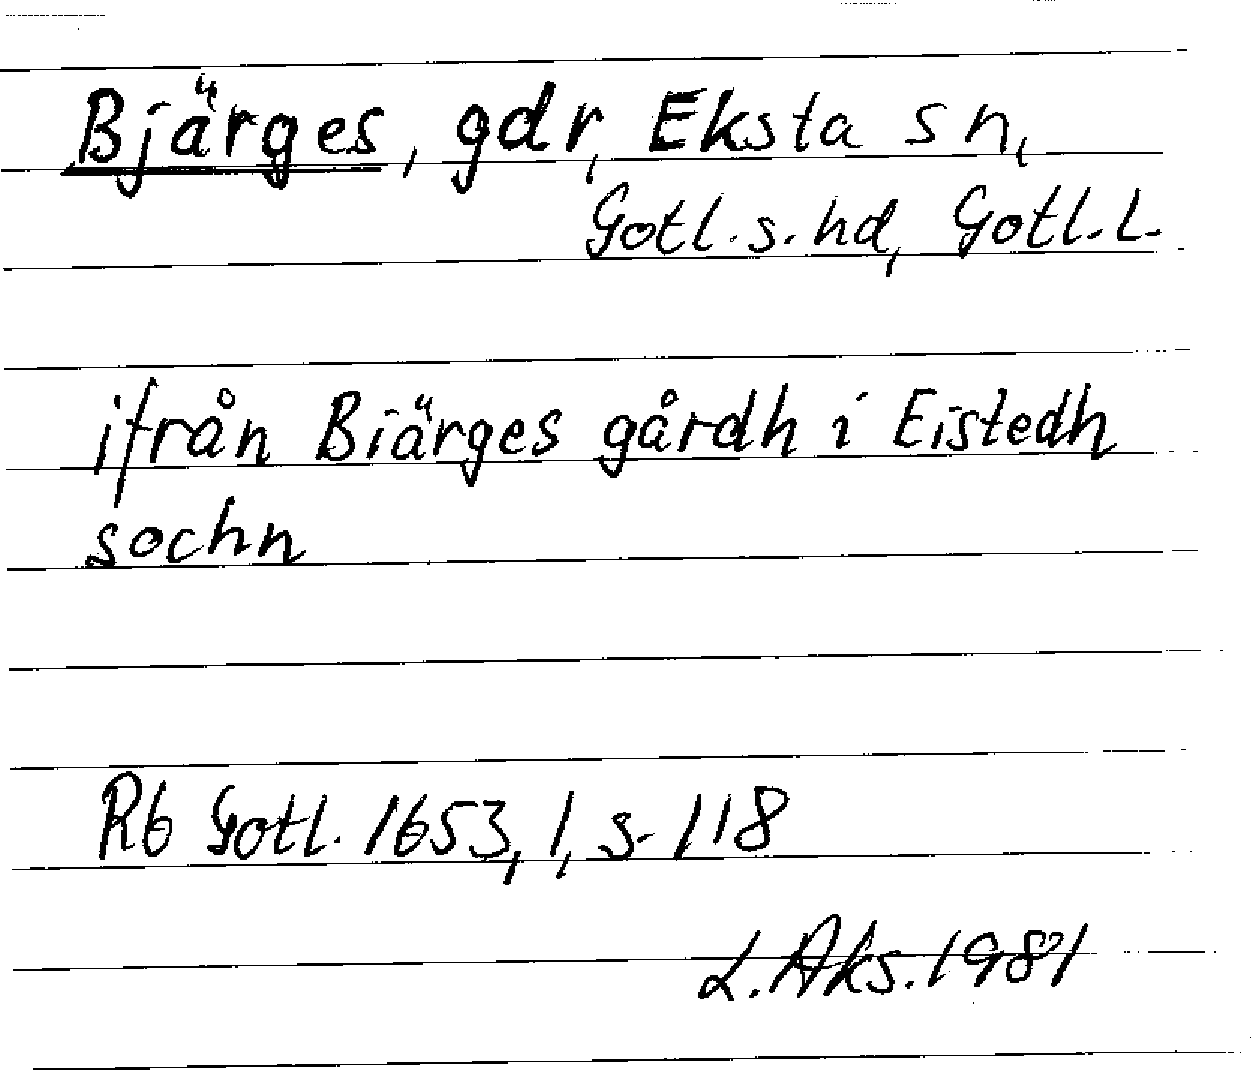 Bjärges, gdr, Eksta sn,
Gotl. s. hd, Gotl. L.
ifrån Biärges gårdh i Eistedh
sochn
Rb Gotl. 1653, 1, s. 118
L. Aks. 1981